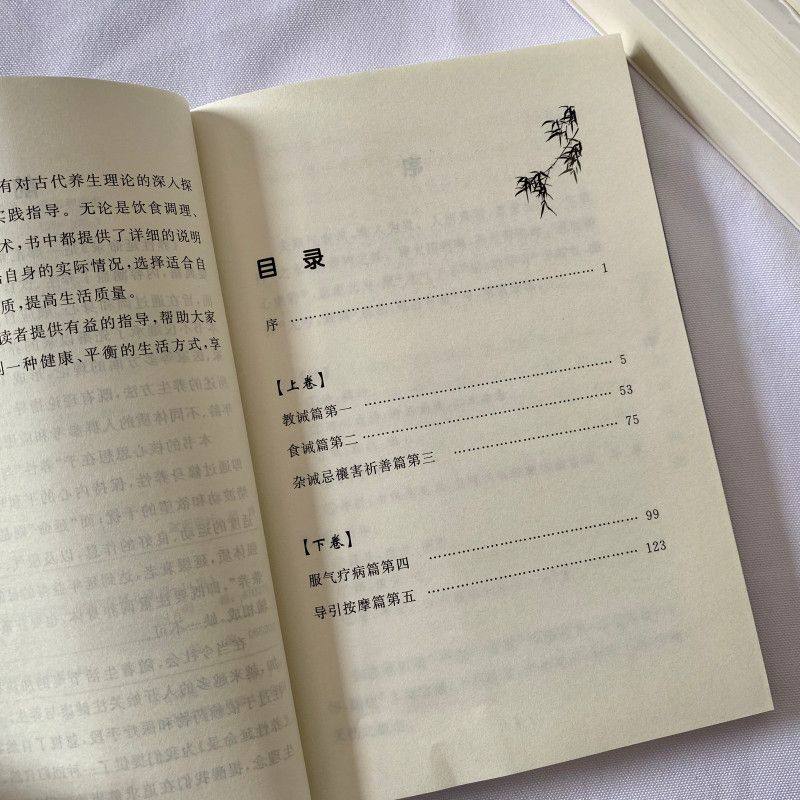 有对古代养生理论的深入探
实践指导。无论是饮食调理、
术，书中都提供了详细的说明
自身的实际情况，选择适合自
质，提高生活质量。
读者提供有益的指导，帮助大家
一种健康、平衡的生活方式，享
目录
序 1
【上卷】
教诫篇第一 5
食诫篇第二 53
杂诫忌禳害祈善篇第三 75
【下卷】
服气疗病篇第四 99
导引按摩篇第五 123